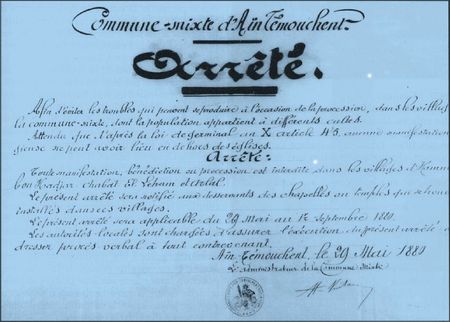 Commune-mixte d'Aïn Témouchent.
Arrêté.
Afin d'éviter les troubles qui peuvent se produire à l'occasion de la procession, dans les villag
la commune-mixte, dont la population appartient à différents cultes.
Attendu que d'après la loi de Germinal an X article 45, aucune manifestation
gieuse ne peut avoir lieu en dehors des églises.
Arrêté:
Toute manifestation, bénédiction ou procession est interdite dans les villages d'Hamma
Bou Hadjar chabat El Leham et
Le présent arrêté sera notifié aux desservants des chapelles ou temples qui se trouv
installés dans ces villages.
Le présent arrêté sera applicable du 29 Mai au 1er Septembre 1880.
Les autorités locales sont chargées d'assurer l'exécution du présent arrêté
dresser procès verbal à tout contrevenant.
Aïn Témouchent, le 29 Mai 1880
L'administrateur de la Commune Mixte